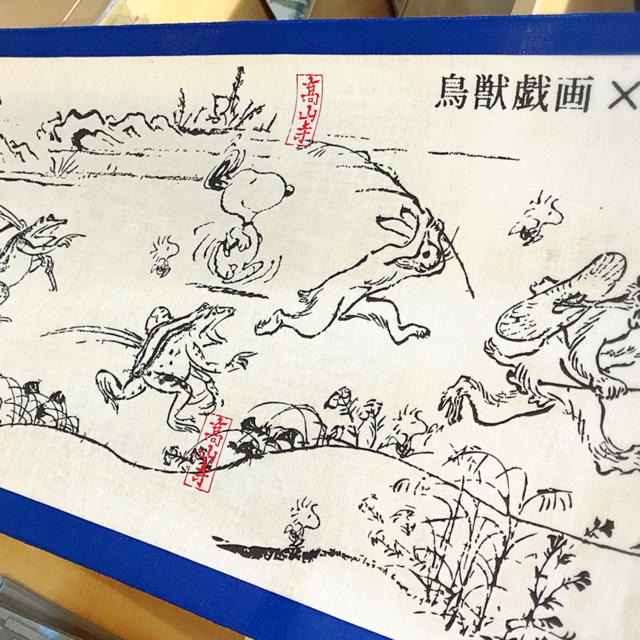 鳥獣戯画 ×
高山寺
高山寺